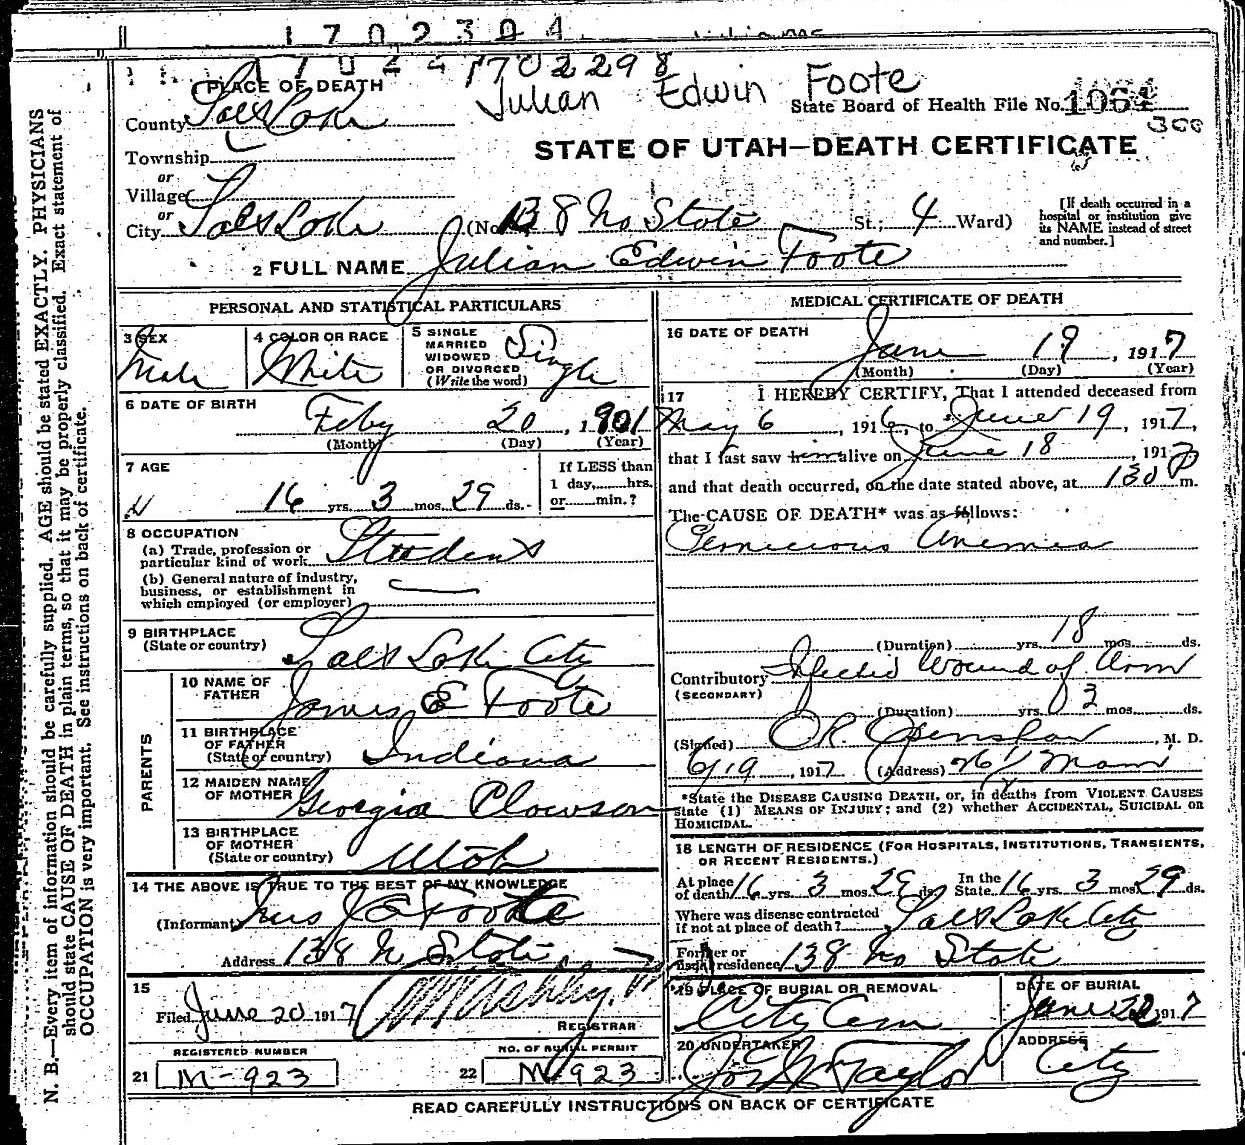 1702304
1702298
Julian Edwin Foote
PLACE OF DEATH
State Board of Health File No. 1064
300
County Salt Lake
STATE OF UTAH—DEATH CERTIFICATE
Township
or
Village
or
City Salt Lake (No. 138 No State St; 4 Ward)
[If death occurred in a hospital or institution give its NAME instead of street and number.]
2 FULL NAME Julian Edwin Foote
PERSONAL AND STATISTICAL PARTICULARS
3 SEX Male
4 COLOR OR RACE White
5 SINGLE MARRIED WIDOWED OR DIVORCED (Write the word) Single
6 DATE OF BIRTH Feby 20, 1901
(Month) (Day) (Year)
7 AGE 16 yrs. 3 mos. 29 ds.
If LESS than 1 day, hrs. or min.?
8 OCCUPATION
(a) Trade, profession or particular kind of work Student
(b) General nature of industry, business, or establishment in which employed (or employer)
9 BIRTHPLACE (State or country) Salt Lake City
PARENTS
10 NAME OF FATHER James E Foote
11 BIRTHPLACE OF FATHER (State or country) Indiana
12 MAIDEN NAME OF MOTHER Georgia Clowson
13 BIRTHPLACE OF MOTHER (State or country) Utah
14 THE ABOVE IS TRUE TO THE BEST OF MY KNOWLEDGE
(Informant) Mrs J E Foote
Address 138 N State
15
Filed June 20 1917
REGISTRAR
REGISTERED NUMBER
21 M-923
NO. OF BURIAL PERMIT
22 M-923
MEDICAL CERTIFICATE OF DEATH
16 DATE OF DEATH June 19, 1917
(Month) (Day) (Year)
17 I HEREBY CERTIFY, That I attended deceased from
May 6, 1916, to June 19, 1917,
that I last saw him alive on June 18, 1917
and that death occurred, on the date stated above, at 130 P m.
The CAUSE OF DEATH* was as follows:
Pernicious Anemia
(Duration) yrs. 18 mos. ds.
Contributory (SECONDARY) Infected Wound of Arm
(Duration) yrs. 3 mos. ds.
(Signed) O R Openshaw, M. D.
6/19, 1917 (Address)
*State the DISEASE CAUSING DEATH, or, in deaths from VIOLENT CAUSES
state (1) MEANS OF INJURY; and (2) whether ACCIDENTAL, SUICIDAL OR
HOMICIDAL.
18 LENGTH OF RESIDENCE (FOR HOSPITALS, INSTITUTIONS, TRANSIENTS,
OR RECENT RESIDENTS.)
At place of death 16 yrs. 3 mos. 29 ds. In the State 16 yrs. 3 mos. 29 ds.
Where was disease contracted if not at place of death? Salt Lake City
Former or usual residence 138 No State
19 PLACE OF BURIAL OR REMOVAL City Cem
DATE OF BURIAL June 22 1917
20 UNDERTAKER Jos Wm Taylor
ADDRESS City
READ CAREFULLY INSTRUCTIONS ON BACK OF CERTIFICATE
N. B.—Every item of information should be carefully supplied. AGE should be stated EXACTLY. PHYSICIANS
should state CAUSE OF DEATH in plain terms, so that it may be properly classified. Exact statement of
OCCUPATION is very important. See instructions on back of certificate.